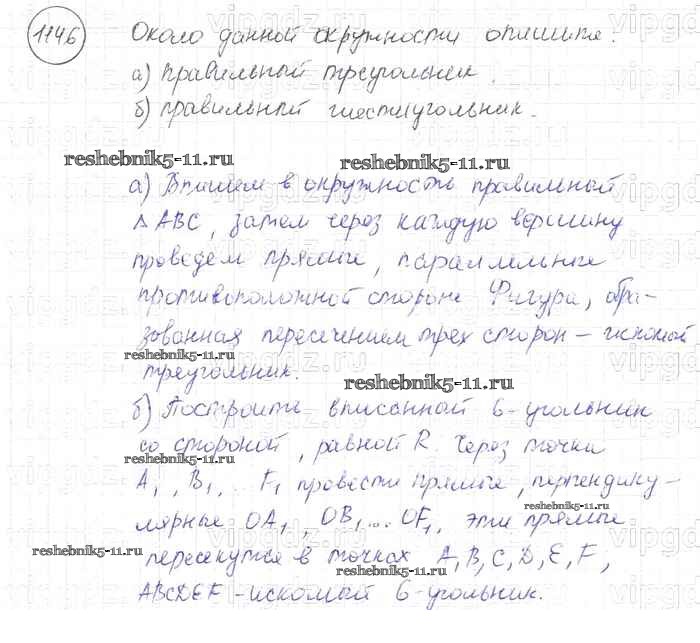 1146 Около данной окружности опишите:
а) правильный треугольник.
б) правильный шестиугольник.
reshebnik5-11.ru
reshebnik5-11.ru
а) Впишем в окружность правильный
ΔABC, затем через каждую вершину
проведем прямые, параллельные
противоположной стороне. Фигура, обра-
зованная пересечением трех сторон – искомый
reshebnik5-11.ru
треугольник.
reshebnik5-11.ru
б) Построить вписанный 6-угольник
со стороной, равной R. Через точки
reshebnik5-11.ru
A₁, B₁, ... F₁ провести прямые, перпендику-
reshebnik5-11.ru
лярные OA₁, OB₁, ... OF₁, эти прямые
reshebnik5-11.ru
пересекутся в точках A, B, C, D, E, F,
reshebnik5-11.ru
ABCDEF - искомый 6-угольник.